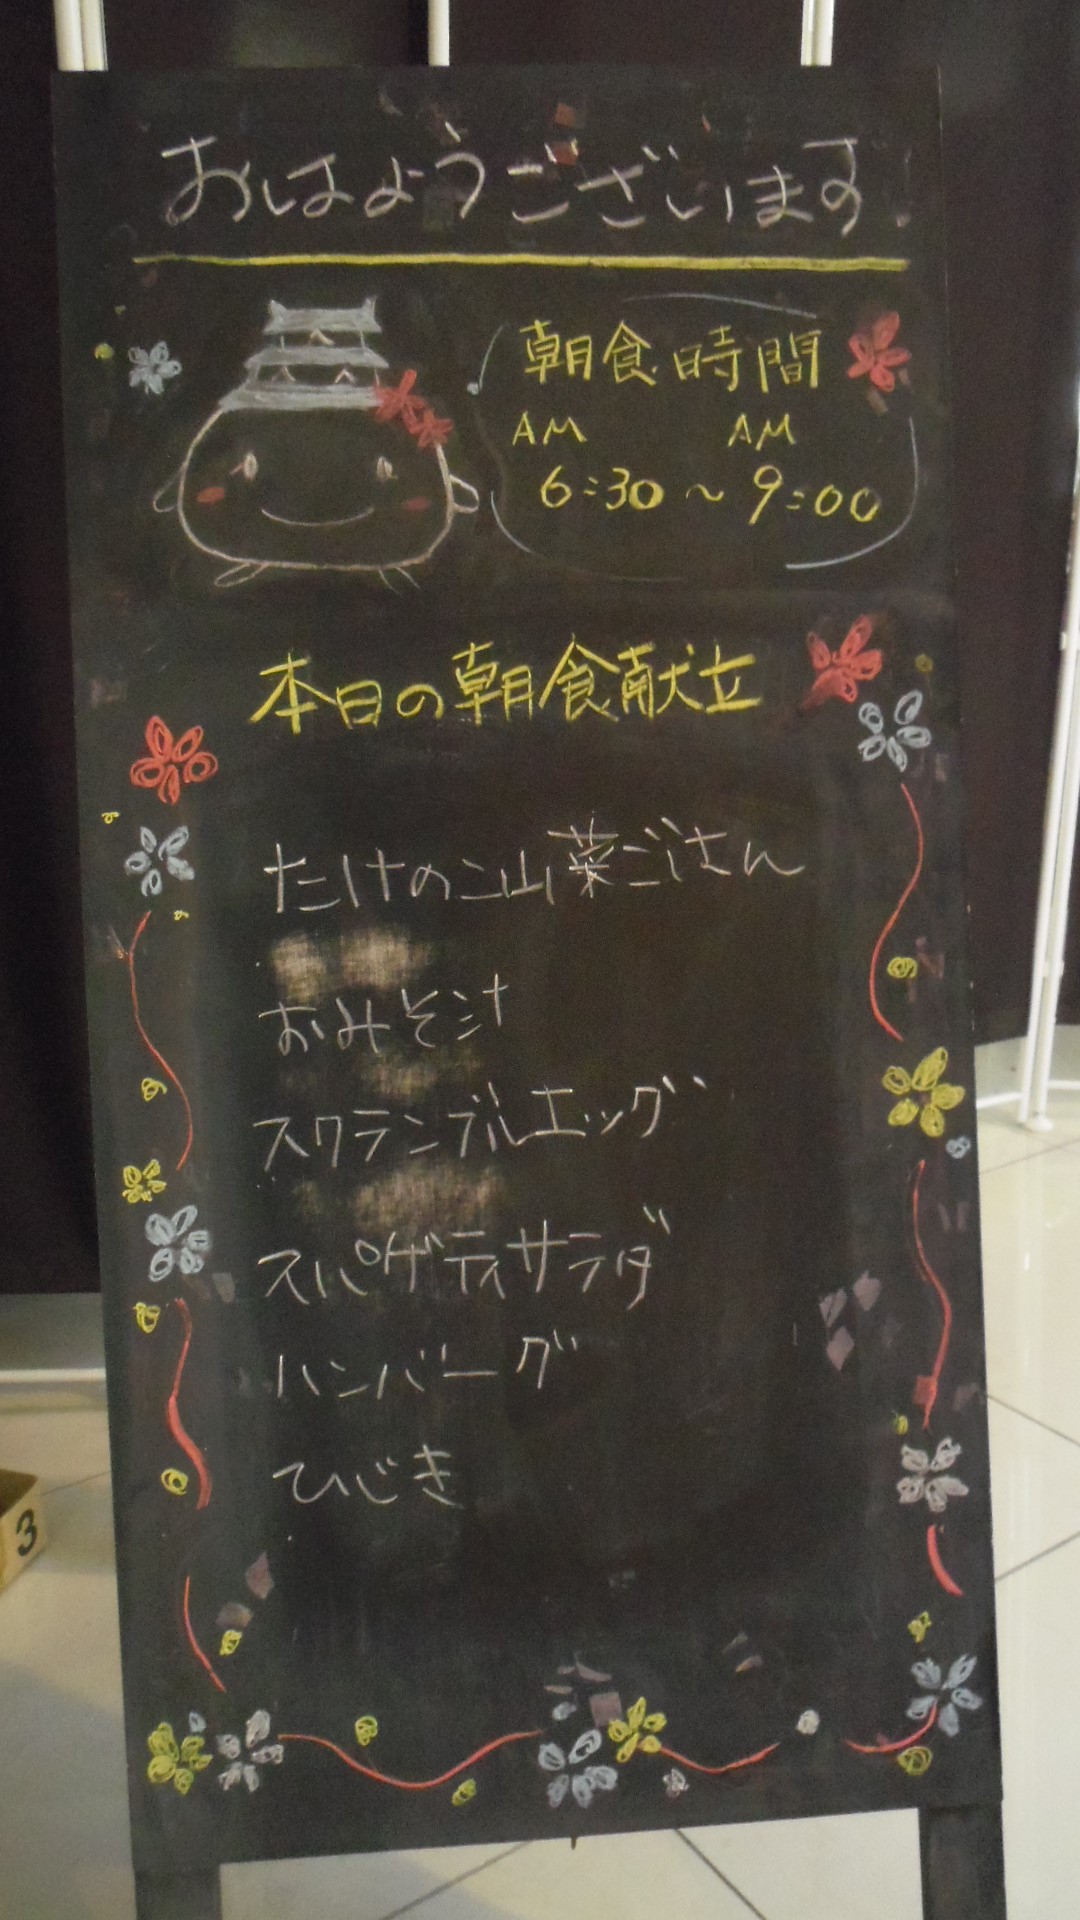 おはようございます!
朝食時間
AM AM
6:30 ~ 9:00
本日の朝食献立
たけのこ山菜ごはん
おみそ汁
スクランブルエッグ
スパゲティサラダ
ハンバーグ
ひじき
3